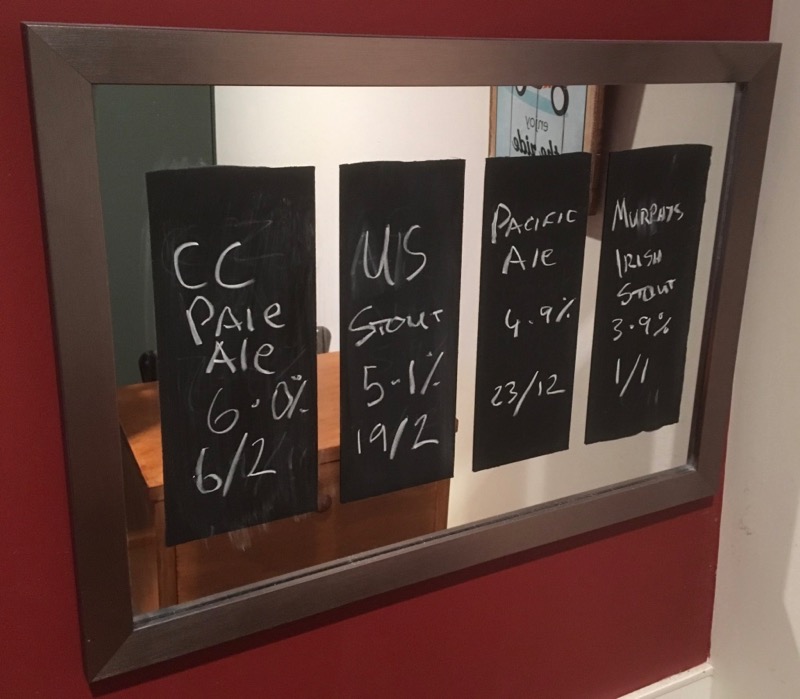 CC
Pale
Ale
6.0%
6/2
US
Stout
5.1%
19/2
Pacific
Ale
4.9%
23/12
Murphys
Irish
Stout
3.9%
1/1
enjoy
the ride